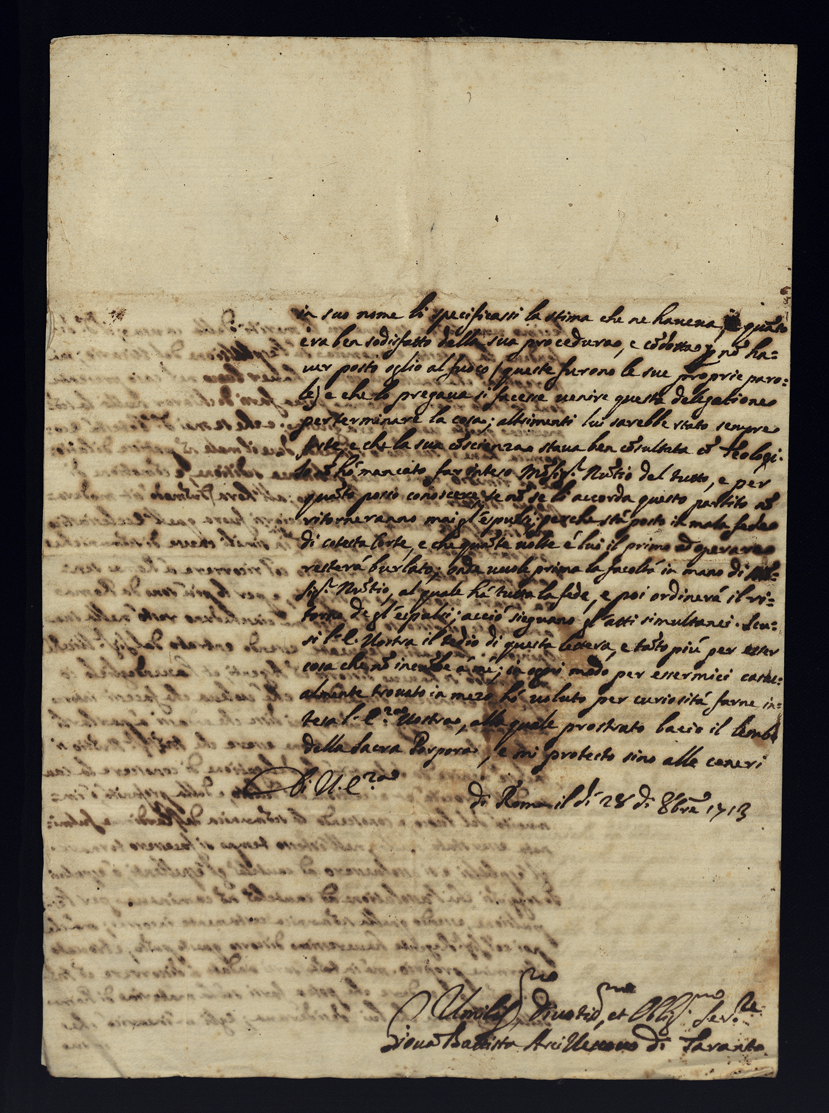 in suo nome li specificassi la stima che ne haveva, e quanto
era ben sodisfatto della sua procedura, e condotta p. nō ha=
ver posto oglio al fuoco (queste furono le sue proprie paro=
le) e che lo pregava si facesse venire questa delegatione
per terminare la cosa; altrimenti lui sarebbe stato sempre
forte, e che la sua cōscienza stava ben cōsultata cō Teologi.
nō hò mancato far inteso Mōs.r Nūtio del tutto, e per
quāto posso conoscere, se nō se li accorda questo partito nō
ritorneranno mai gl'espulsi; perche stà posto in mala fede
di cotesta Corte, e che quāte volte é lui il primo ad operare
resterà burlato; onde vuole prima la facoltà in mano di
Nūtio, al quale hà tutta la fede, e poi ordinerà il ri=
torno de gl'espulsi; acciò sieguano gl'atti simultanei. Scu=
si l'E. Vostra il tedio di questa lettera, e tāto più per esser
cosa che nō incōbe à mè; in ogni modo per essermici casu=
almente trovato in mezo hò voluto per curiosità farne in=
tesa l'E.za Vostra, alla quale prostrato bacio il lembo
della Sacra Porpora, e mi protesto sino alle ceneri
Di V. E.za
di Roma il dì 28 di 8bre 1713
Umiliss.mo, Divotiss.mo, et Obblig.mo Ser.re
Giovan Battista Arcivescovo di Taranto